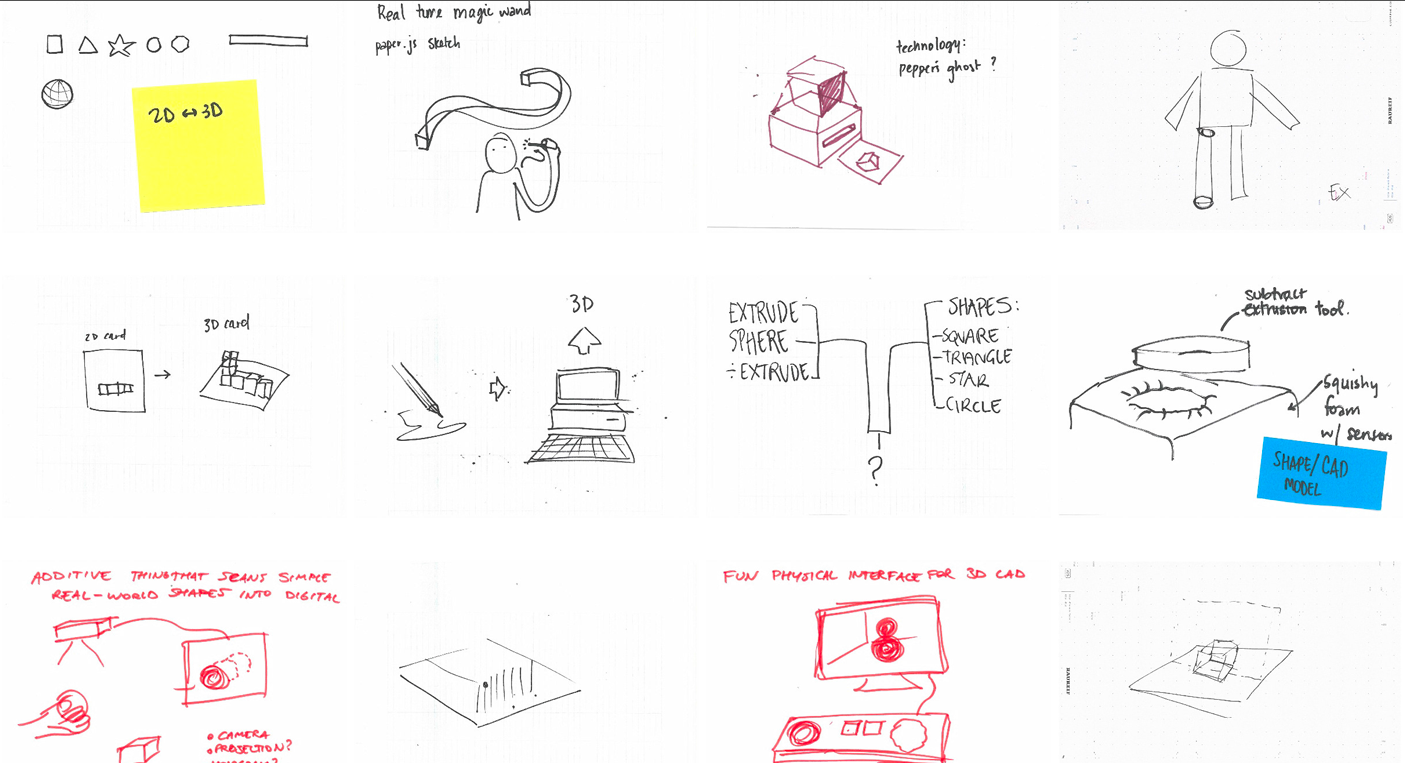 2D ↔ 3D
Real time magic wand
paper.js sketch
technology:
pepper's ghost ?
Ex
RADREIF
2D card
3D card
3D
EXTRUDE
SPHERE
÷ EXTRUDE
?
SHAPES:
-SQUARE
-TRIANGLE
-STAR
-CIRCLE
subtract
extrusion tool.
Squishy
foam
w/ sensors
SHAPE/CAD
MODEL
ADDITIVE THING THAT SCANS SIMPLE
REAL-WORLD SHAPES INTO DIGITAL
• CAMERA
• PROJECTION?
FUN PHYSICAL INTERFACE FOR 3D CAD